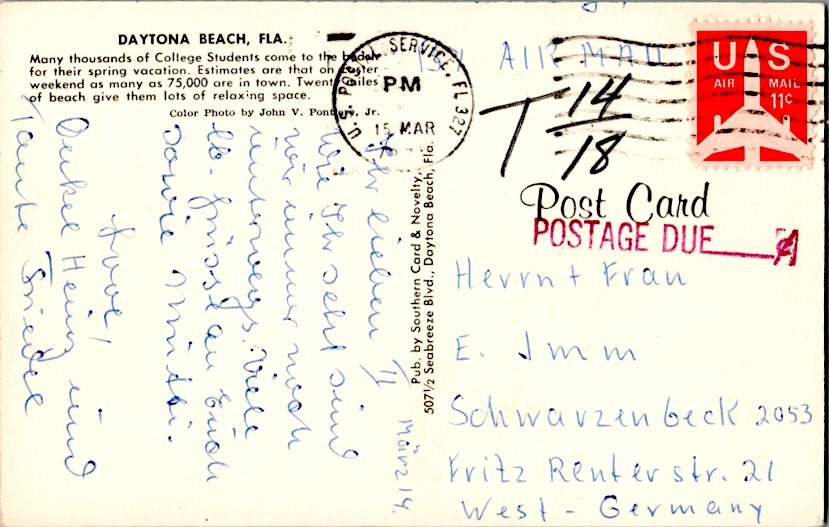 DAYTONA BEACH, FLA.
Many thousands of College Students come to the beach
for their spring vacation. Estimates are that on Easter
weekend as many as 75,000 are in town. Twenty miles
of beach give them lots of relaxing space.
Color Photo by John V. Pontiery, Jr.
U.S. POSTAL SERVICE, FL 327
PM
15 MAR
BY AIR MAIL
U S
AIR MAIL
11¢
T 14
18
Post Card
POSTAGE DUE ¢
Pub. by Southern Card & Novelty,
507½ Seabreeze Blvd., Daytona Beach, Fla.
März 14.
Ihr lieben
Wie Ihr seht sind
wir immer noch
unterwegs. Viele
lb. Grüsse an Euch
sowie Mutti.
Onkel Heinz und
Tante Friedel
Herrn + Frau
E. Imm
Schwarzenbeck 2053
Fritz Reuterstr. 21
West - Germany